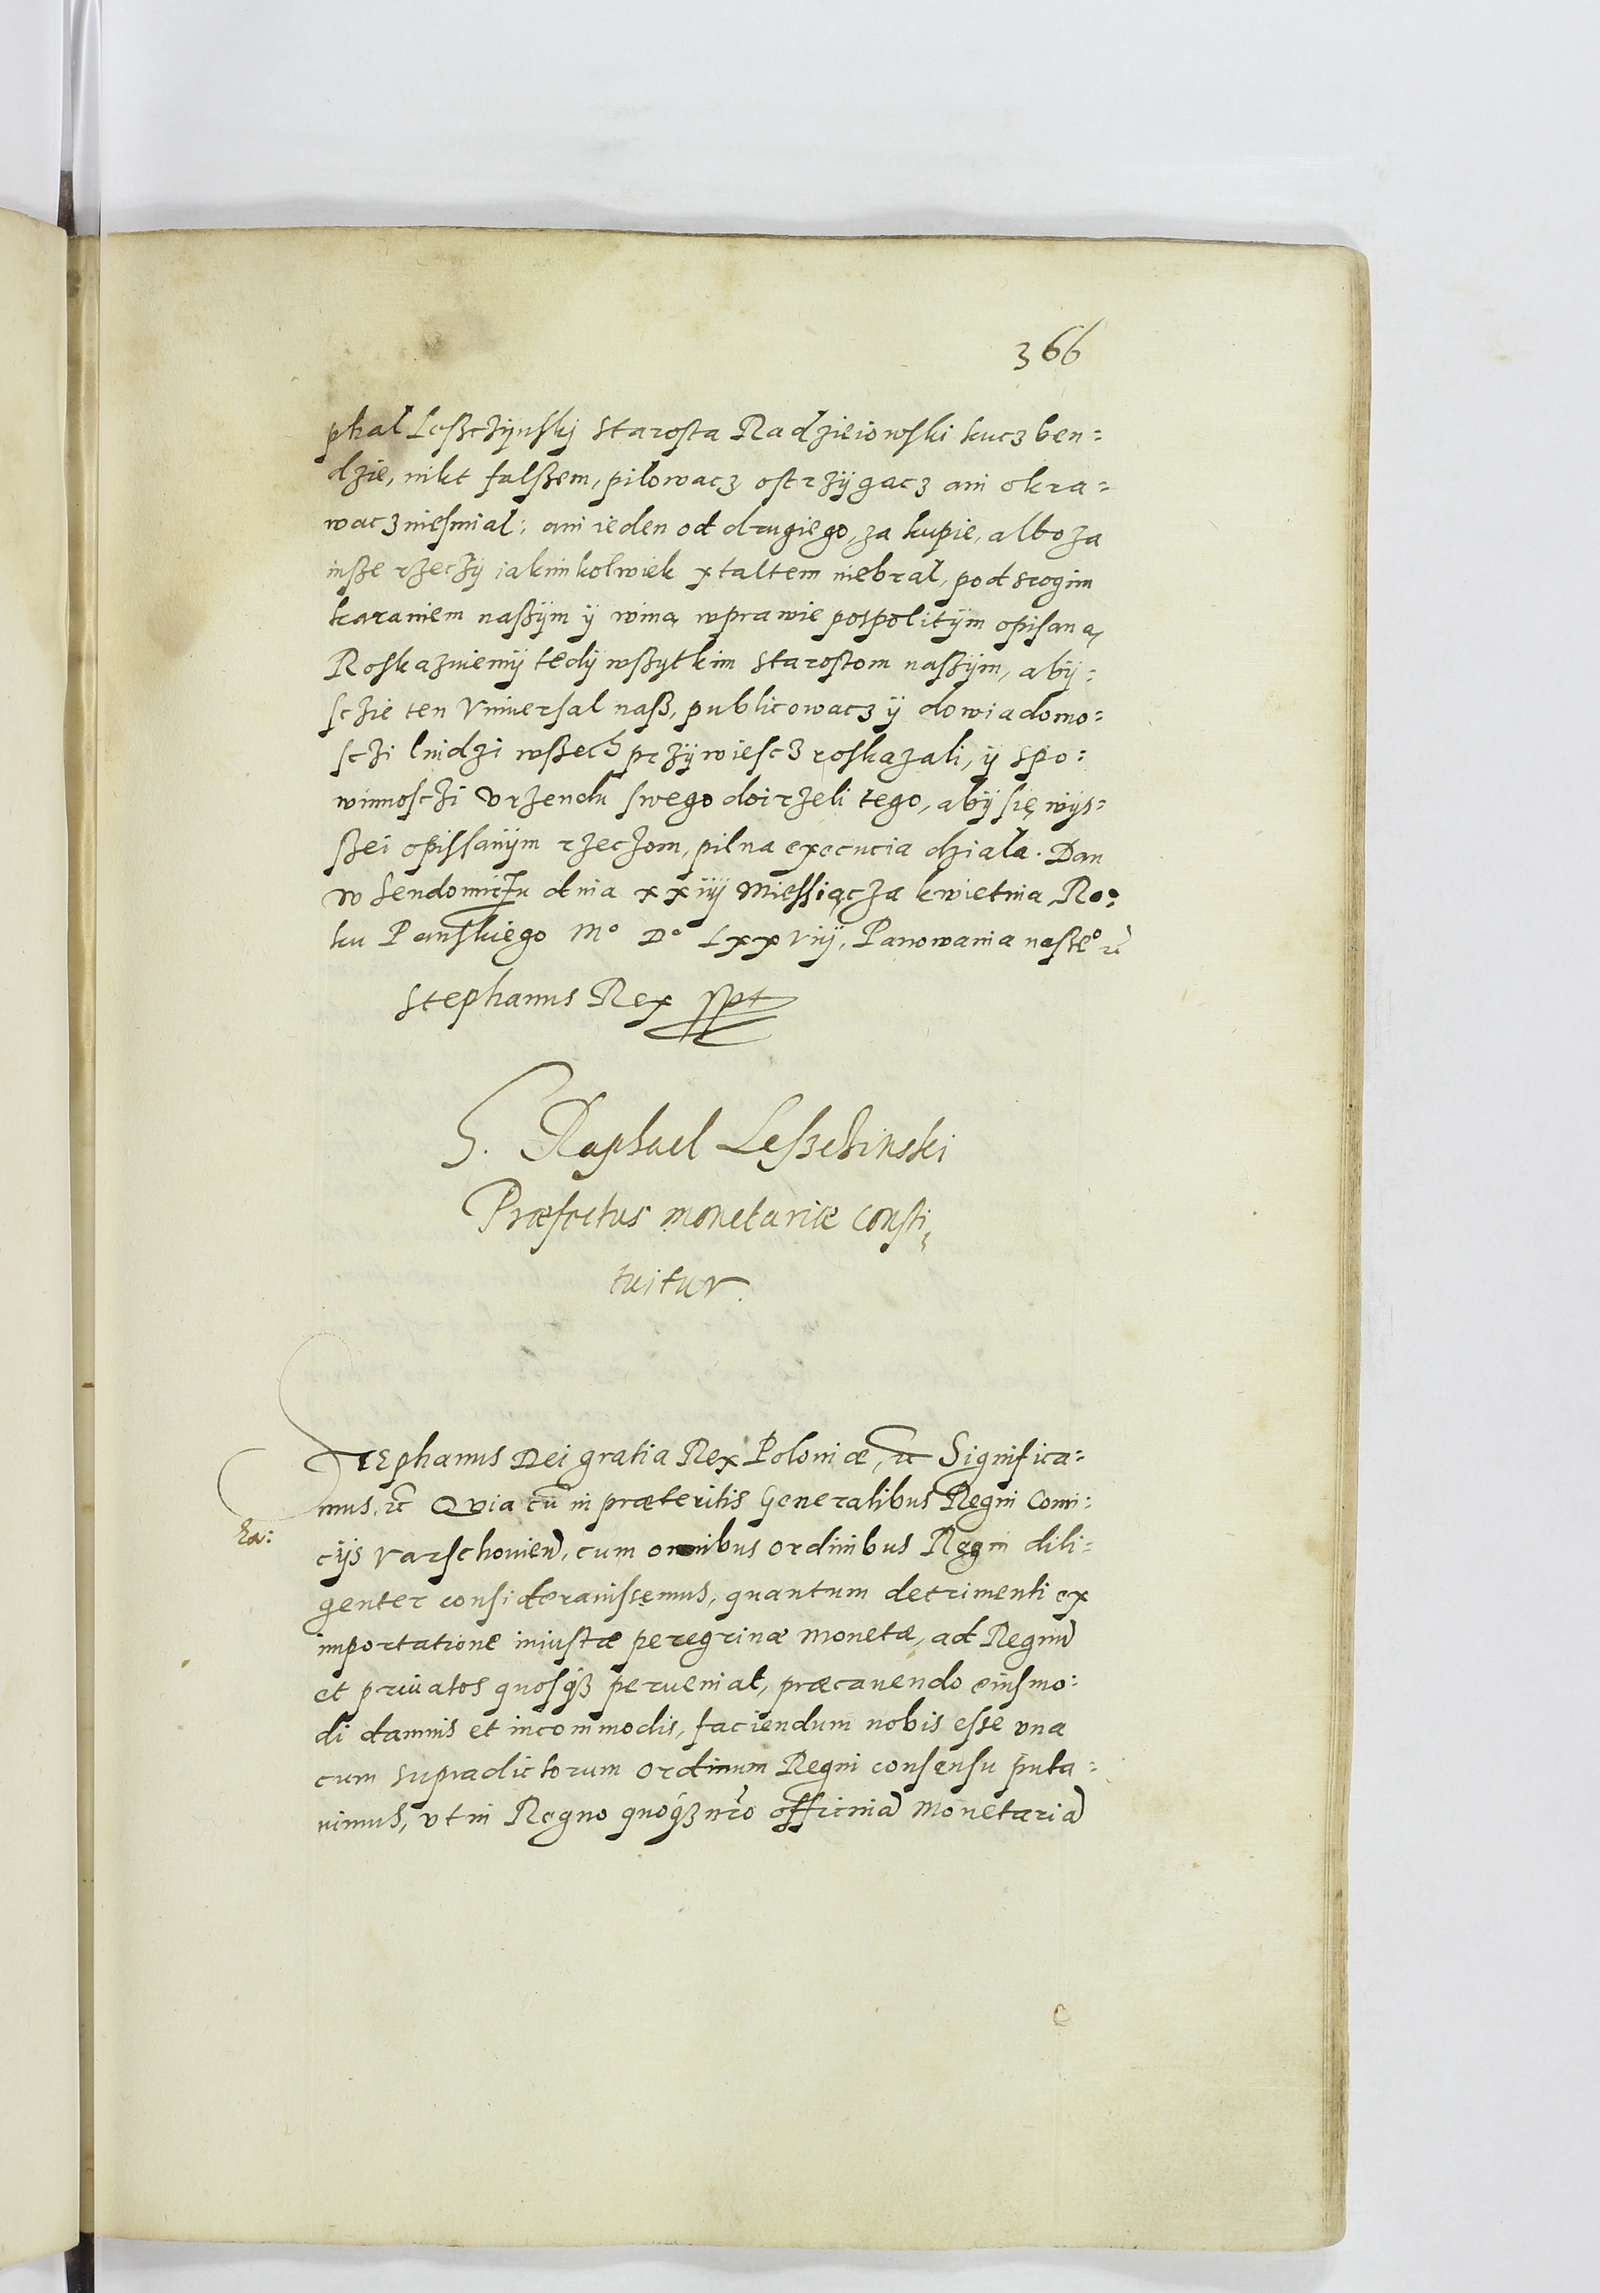 366
phal Leßczÿnskj Starosta Radzieiowski kucz ben=
dzie, nikt falßem, pilowacz ostrzÿgacz ani okra=
wacz niesmial: ani ieden od drugiego, za kupie, albo za
inße rzeczÿ iakimkolwiek xtaltem niebral, pod srogim
karaniem naßÿm ÿ wina wprawie pospolitÿm opisana,
Roskazuiemÿ tedÿ wßytkim Starostom naßÿm, abÿ=
sczie ten Vniuersal naß, publicowacz ÿ dowiadomo=
sczi liudzi wßech przÿwiescz roskazali, ÿ spo=
winnosczi Vrzendu swego doirzeli tego, abÿ się wÿs=
ßei opissanÿm rzeczom, pilna execucia dziala. Dan
w Sendomirzu dnia xxiiÿ Miessiącza kwietnia, Ro=
ku Panskiego Mº Dº Lxxviiÿ, Panowania naßeº rc
Stephanus Rex sspt
G. Raphael Leszchinski
Præfectus monetariæ consti=
tuitur.
Stephanus Dei gratia Rex Poloniæ, rc Significa=
mus, rc Quia cũ in præteritis Generalibus Regni Comi=
Ra:
cijs Varschouien, cum omnibus ordinibus Regni dili=
genter considerauissemus, quantum detrimenti ex
importatione iniustæ peregrinæ monetæ, ad Regnũ
et priuatos quosqz perueniat, præcauendo eiusmo=
di damnis et incommodis, faciendum nobis esse vna
cum supradictorum ordinum Regni consensu puta=
uimus, vt in Regno quoqz nr̃o officina Monetaria